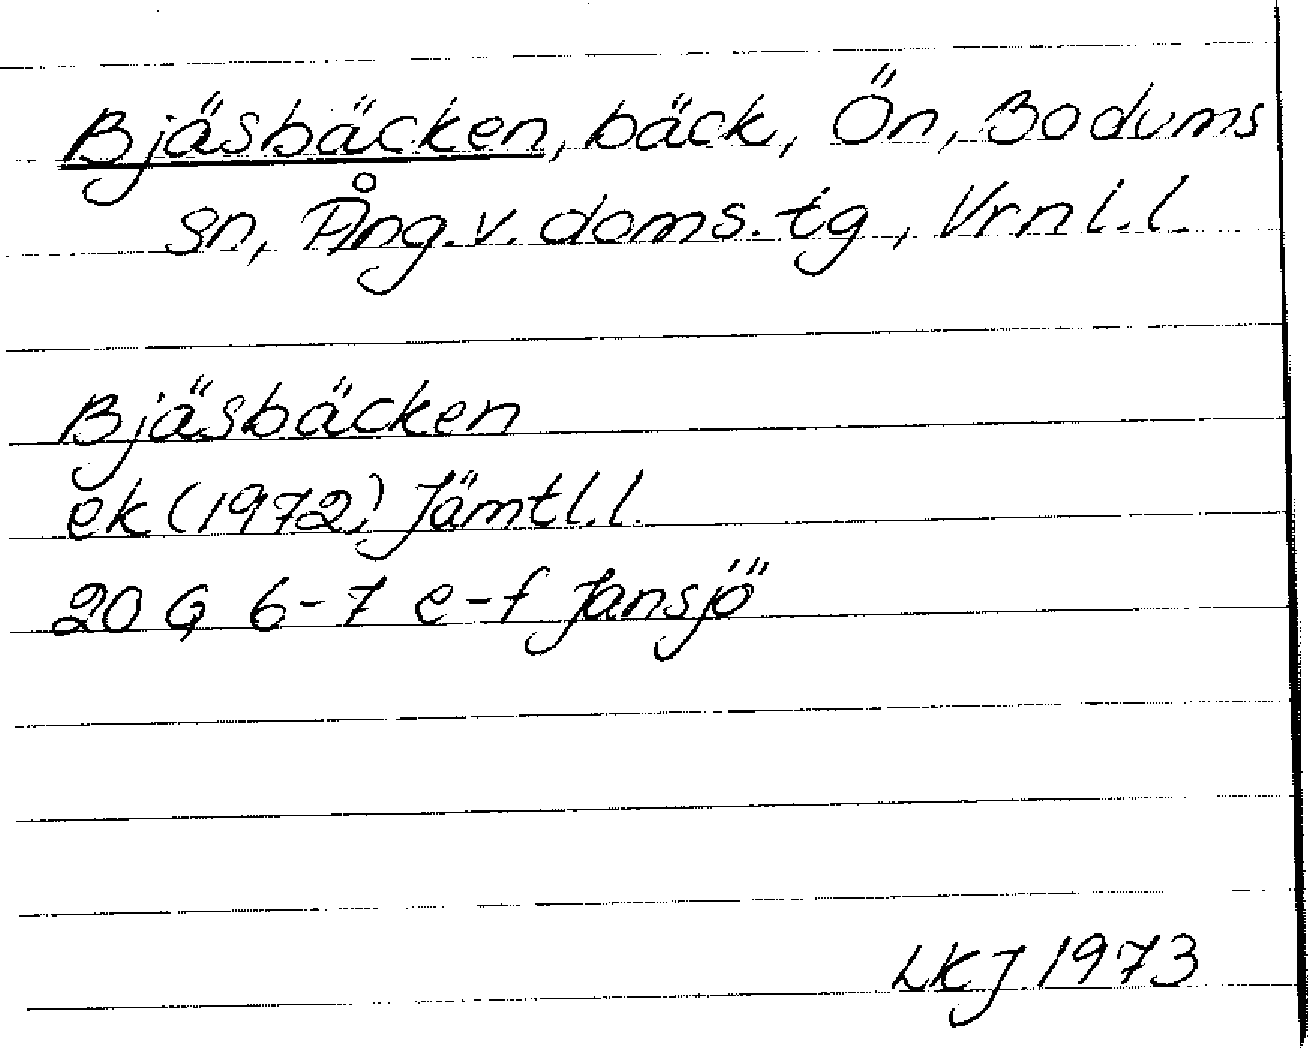 Bjäsbäcken, bäck, Ön, Bodums
sn, Ång.v. doms.tg, Vrnl.l.
Bjäsbäcken
ek (1972) Jämtl.l.
20 G 6-7 e-f Jansjö
LKJ 1973